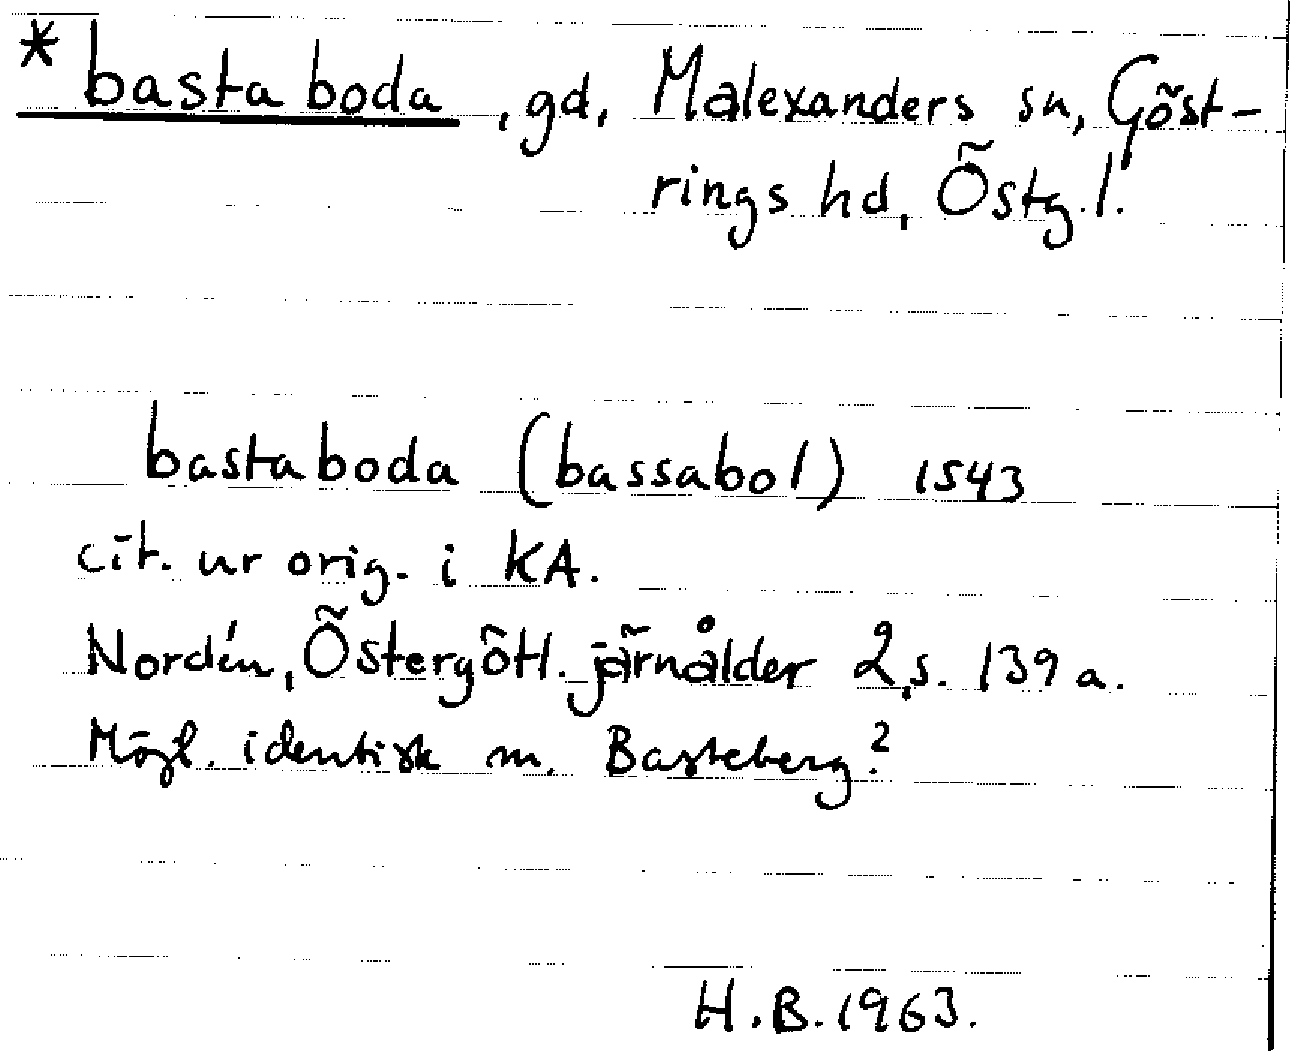 * bastaboda, gd, Malexanders sn, Göst-
rings hd, Östg.l.
bastaboda (bassabol) 1543
cit. ur orig. i KA.
Nordén, Östergötl. järnålder 2, s. 139 a.
Mögl. identisk m. Basteberg?
H.B. 1963.